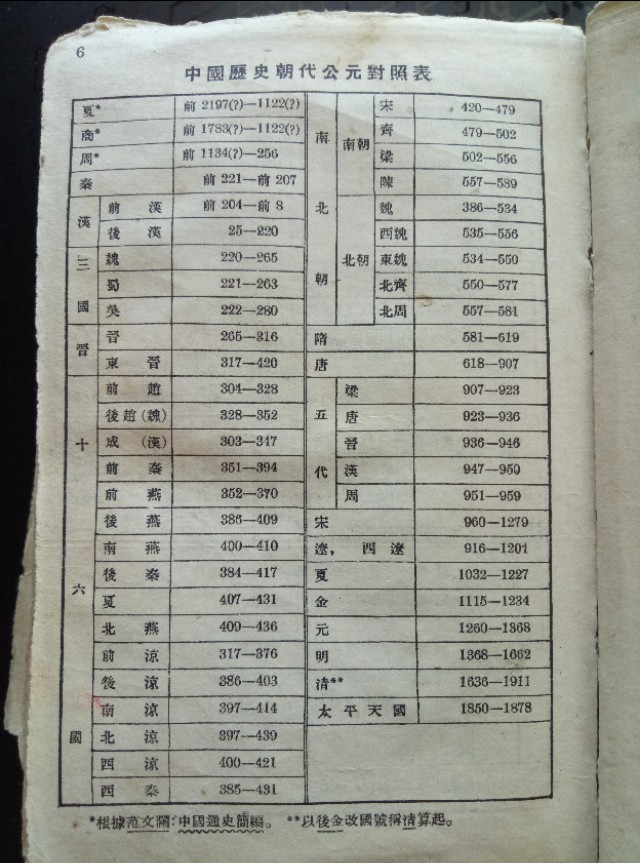 6
中國歷史朝代公元對照表
夏* 前 2197(?)—1122(?)
商* 前 1783(?)—1122(?)
周* 前 1134(?)—256
秦 前 221—前 207
漢
前漢 前 204—前 8
後漢 25—220
三國
魏 220—265
蜀 221—263
吳 222—280
晉
晉 265—316
東晉 317—420
十六國
前趙 304—328
後趙(魏) 328—352
成(漢) 303—347
前秦 351—394
前燕 352—370
後燕 386—409
南燕 400—410
後秦 384—417
夏 407—431
北燕 409—436
前涼 317—376
後涼 386—403
南涼 397—414
北涼 397—439
西涼 400—421
西秦 385—431
南北朝
南朝
宋 420—479
齊 479—502
梁 502—556
陳 557—589
北朝
魏 386—534
西魏 535—556
東魏 534—550
北齊 550—577
北周 557—581
隋 581—619
唐 618—907
五代
梁 907—923
唐 923—936
晉 936—946
漢 947—950
周 951—959
宋 960—1279
遼,西遼 916—1201
夏 1032—1227
金 1115—1234
元 1260—1368
明 1368—1662
清** 1636—1911
太平天國 1850—1878
*根據范文瀾:中國通史簡編。 **以後金改國號稱清算起。